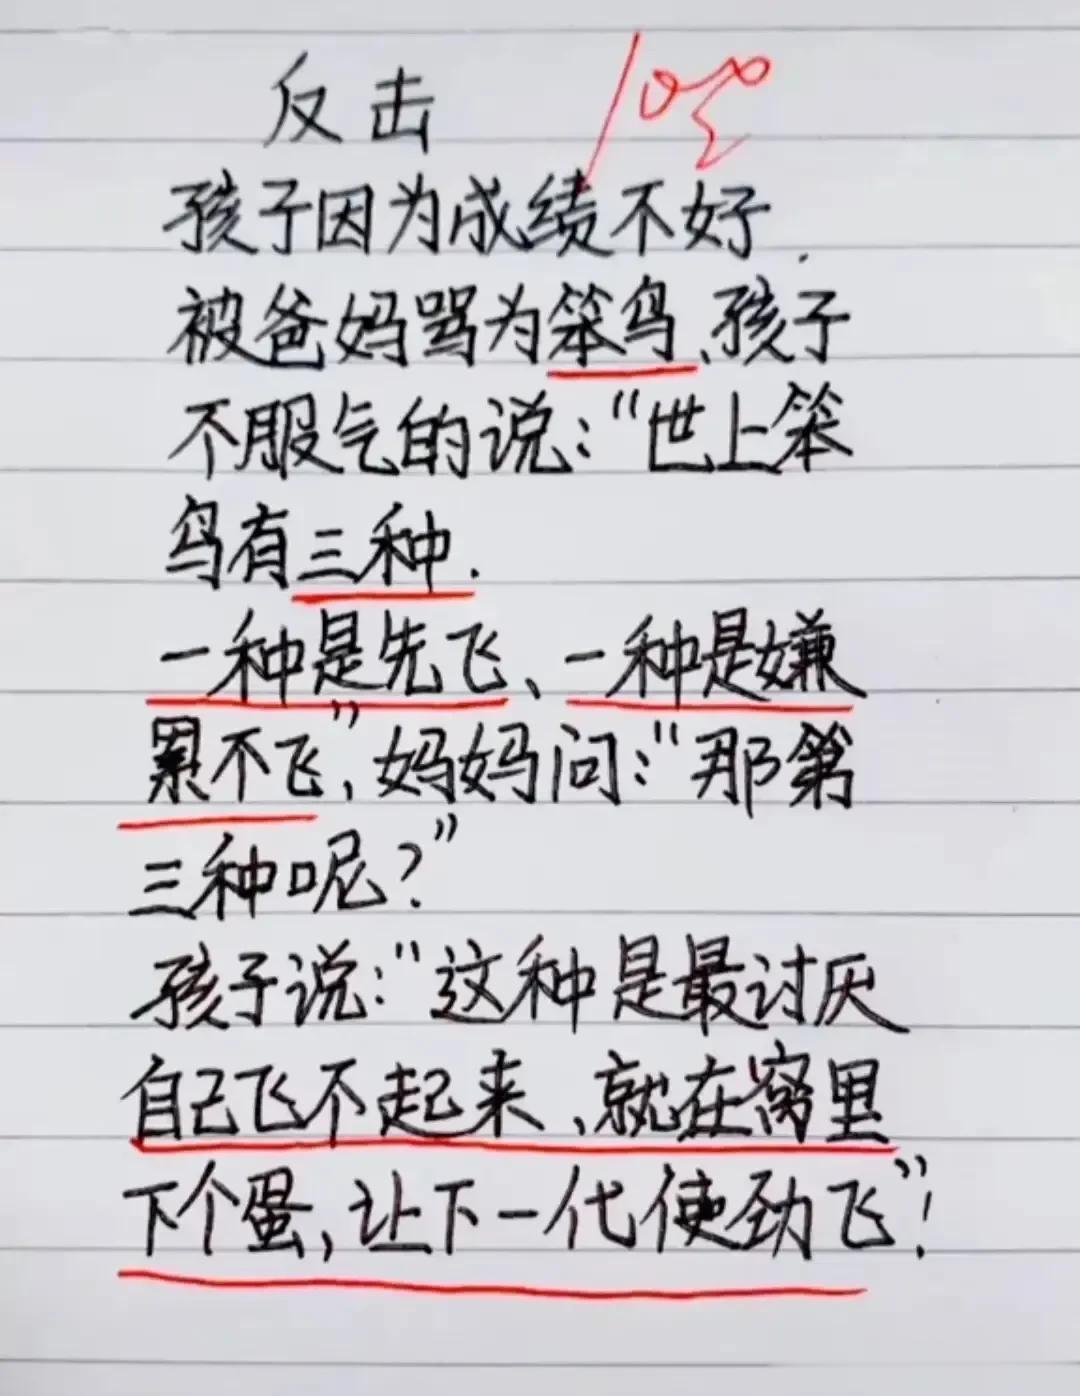 反击
100
孩子因为成绩不好.
被爸妈骂为笨鸟、孩子
不服气的说:“世上笨
鸟有三种.
一种是先飞、一种是嫌
累不飞”,妈妈问:“那第
三种呢?”
孩子说:“这种是最讨厌
自己飞不起来、就在窝里
下个蛋,让下一代使劲飞”!